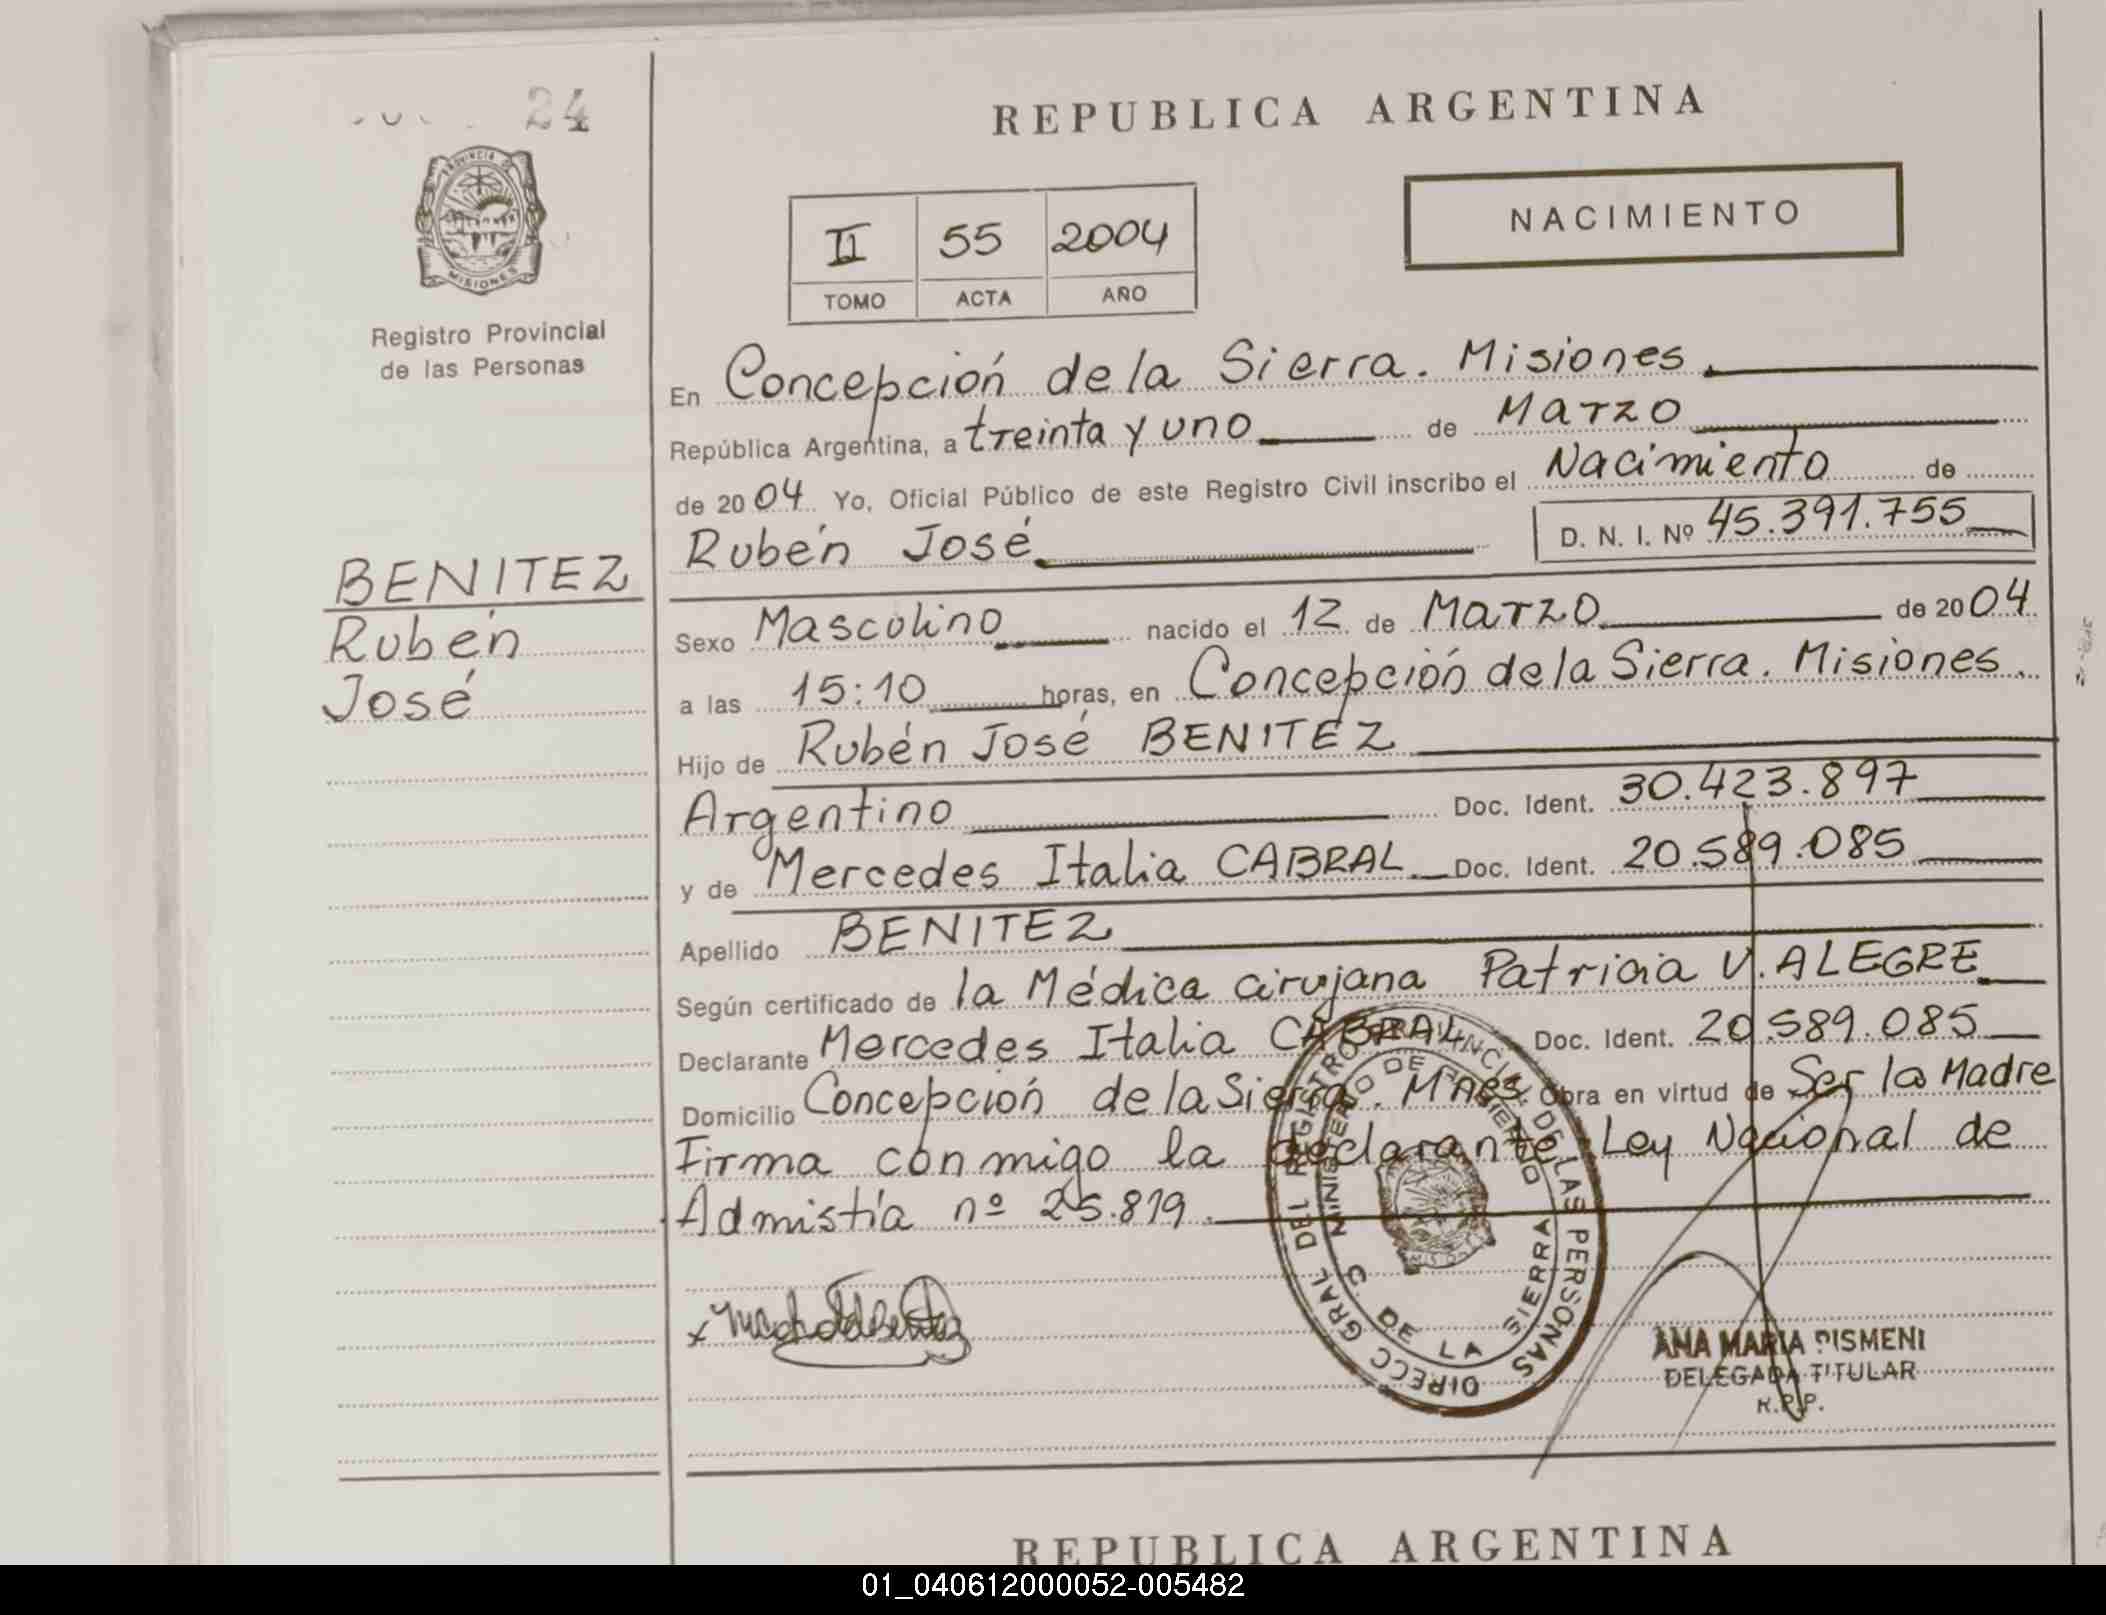 24
REPUBLICA ARGENTINA
PROVINCIA DE
MISIONES
Registro Provincial
de las Personas
II 55 2004
TOMO ACTA AÑO
NACIMIENTO
En Concepción de la Sierra. Misiones
República Argentina, a treinta y uno de Marzo
de 2004 Yo, Oficial Público de este Registro Civil inscribo el Nacimiento de
Rubén José D. N. I. Nº 45.391.755
BENITEZ
Rubén
José
Sexo Masculino nacido el 12 de Marzo de 2004
a las 15:10 horas, en Concepción de la Sierra. Misiones
Hijo de Rubén José BENITEZ
Argentino Doc. Ident. 30.423.897
y de Mercedes Italia CABRAL Doc. Ident. 20.589.085
Apellido BENITEZ
Según certificado de la Médica cirujana Patricia V. ALEGRE
Declarante Mercedes Italia CABRAL Doc. Ident. 20.589.085
Domicilio Concepción de la Sierra. Mnes. Obra en virtud de Ser la Madre
Firma conmigo la declarante, Ley Nacional de
Admistía nº 25.819.
DIRECC GRAL DEL REGISTRO PROVINCIAL DE LAS PERSONAS
MINISTERIO DE GOBIERNO
C. DE LA SIERRA
ANA MARIA PISMENI
DELEGADA TITULAR
R.P.P.
REPUBLICA ARGENTINA
01_040612000052-005482